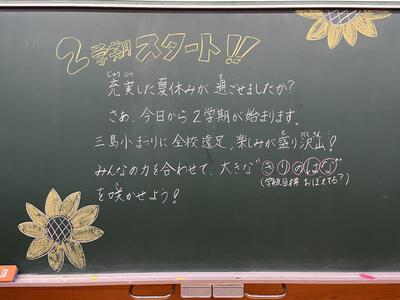 2学期スタート!!
充実した夏休みが過ごせましたか?
さあ、今日から2学期が始まります。
三島小まつりに全校遠足、楽しみが盛り沢山!
みんなの力を合わせて、大きな"きりのはな"
(学校目標 おぼえてる?)
を咲かせよう!